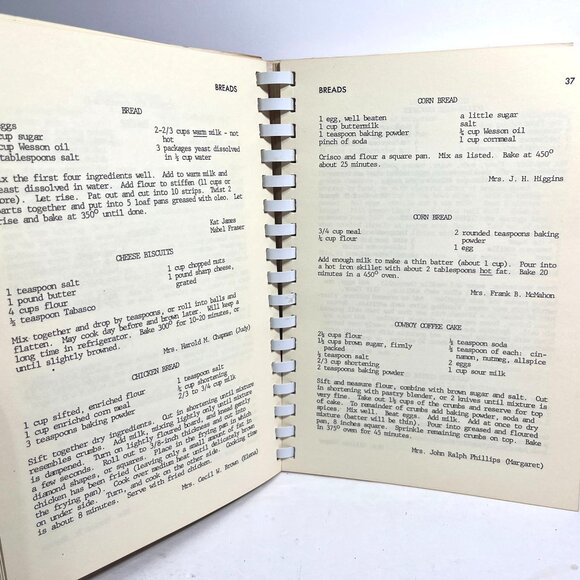 BREADS
BREAD
eggs
cup sugar
cup Wesson oil
tablespoons salt
2-2/3 cups warm milk - not
hot
3 packages yeast dissolved
in ½ cup water
ix the first four ingredients well. Add to warm milk and
yeast dissolved in water. Add flour to stiffen (11 cups or
ore). Let rise. Pat out and cut into 10 strips. Twist 2
arts together and put into 5 loaf pans greased with oleo. Let
rise and bake at 350° until done.
Kat James
Mabel Fraser
CHEESE BISCUITS
1 teaspoon salt
1 pound butter
4 cups flour
½ teaspoon Tabasco
1 cup chopped nuts
1 pound sharp cheese,
grated
Mix together and drop by teaspoons, or roll into balls and
flatten. May cook day before and brown later. Will keep a
long time in refrigerator. Bake 300° for 10-20 minutes, or
until slightly browned.
Mrs. Harold M. Chapman (Judy)
CHICKEN BREAD
1 cup sifted, enriched flour
1 cup enriched corn meal
3 teaspoons baking powder
1 teaspoon salt
¼ cup shortening
2/3 to 3/4 cup milk
Sift together dry ingredients. Cut in shortening until mixture
resembles crumbs. Add milk, mixing lightly only until mixture
is dampened. Turn on lightly floured board, and knead gently
a few seconds. Roll out to 3/8-inch thickness and cut into
diamond shapes, or squares. Place in the frying pan in which
chicken has been fried (leaving only a small amount of fat in
the frying pan). Cook over medium heat until delicately brown
on under side. Turn, and cook on the other side. Cooking time
is about 8 minutes. Serve with fried chicken.
Mrs. Cecil W. Brown (Elena)
BREADS
37
CORN BREAD
1 egg, well beaten
1 cup buttermilk
1 teaspoon baking powder
pinch of soda
a little sugar
salt
¼ cup Wesson oil
1 cup cornmeal
Crisco and flour a square pan. Mix as listed. Bake at 450°
about 25 minutes.
Mrs. J. H. Higgins
CORN BREAD
3/4 cup meal
¼ cup flour
2 rounded teaspoons baking
powder
1 egg
Add enough milk to make a thin batter (about 1 cup). Pour into
a hot iron skillet with about 2 tablespoons hot fat. Bake 20
minutes in a 450° oven.
Mrs. Frank B. McMahon
COWBOY COFFEE CAKE
2½ cups flour
1½ cups brown sugar, firmly
packed
½ teaspoon salt
2/3 cup shortening
2 teaspoons baking powder
½ teaspoon soda
½ teaspoon of each: cin-
namon, nutmeg, allspice
2 eggs
1 cup sour milk
Sift and measure flour, combine with brown sugar and salt. Cut
in shortening with pastry blender, or 2 knives until mixture is
very fine. Take out 1½ cups of the crumbs and reserve for top
of cake. To remainder of crumbs add baking powder, soda and
spices. Mix well. Beat eggs. Add milk. Add at once to dry
mixture (batter will be thin). Pour into greased and floured
pan, 8 inches square. Sprinkle remaining crumbs on top. Bake
in 375° oven for 45 minutes.
Mrs. John Ralph Phillips (Margaret)